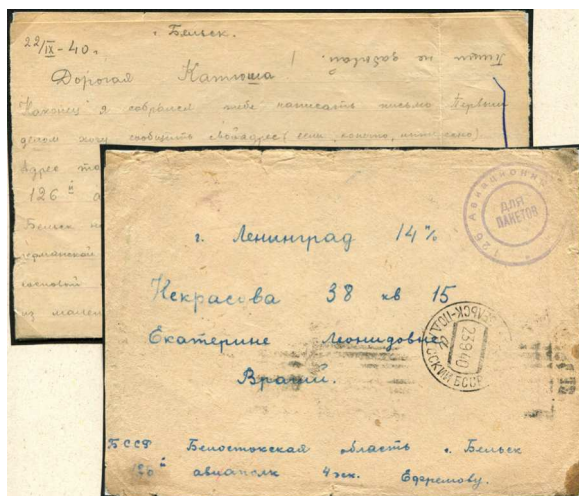 22/IX-40г.
г. Бельск.
Пиши не забывай. !
Дорогая Катюша
Наконец я собрался тебе написать письмо Первым
делом хочу сообщить свой адрес (если, конечно, интересно).
Адрес
126й
Бельск
германской
сосновой
из
126 Авиационный
ДЛЯ
ПАКЕТОВ
г. Ленинград 14%
Некрасова 38 кв 15
Екатерине Леонидовне
БЕЛЬСК-ПОДЛЯССКИЙ БССР
23 9 40
БССР Белостокская область г. Бельск
126й авиаполк 4 эск. Ефремову.